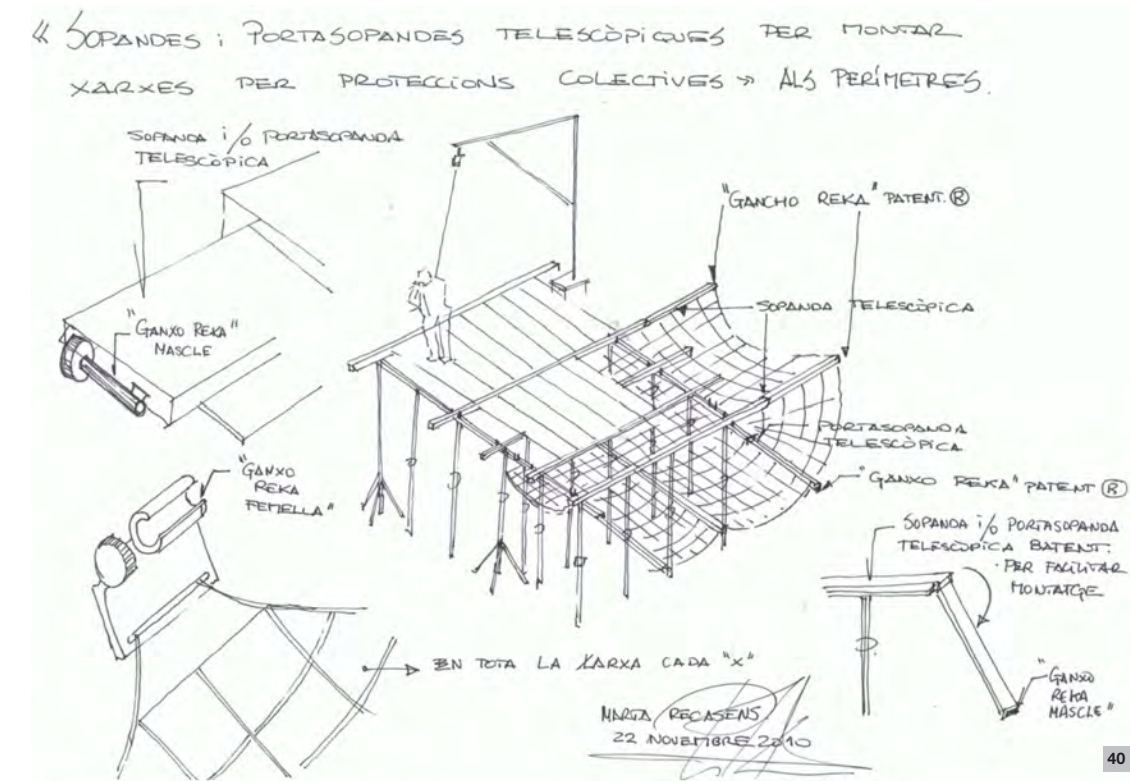 « SOPANDES i PORTASOPANDES TELESCÒPIQUES PER MONTAR
XARXES PER PROTECCIONS COLECTIVES » ALS PERÍMETRES.
SOPANDA i/o PORTASOPANDA
TELESCÒPICA
"GANXO REKA"
MASCLE
"GANCHO REKA" PATENT. ®
SOPANDA TELESCÒPICA
PORTASOPANDA
TELESCÒPICA
"GANXO REKA" PATENT ®
"GANXO
REKA
FEMELLA"
SOPANDA i/o PORTASOPANDA
TELESCÒPICA BATENT.
· PER FACILITAR
MONTATGE
EN TOTA LA XARXA CADA "X"
"GANXO
REKA
MASCLE"
MARTA RECASENS.
22 NOVEMBRE 2010
40